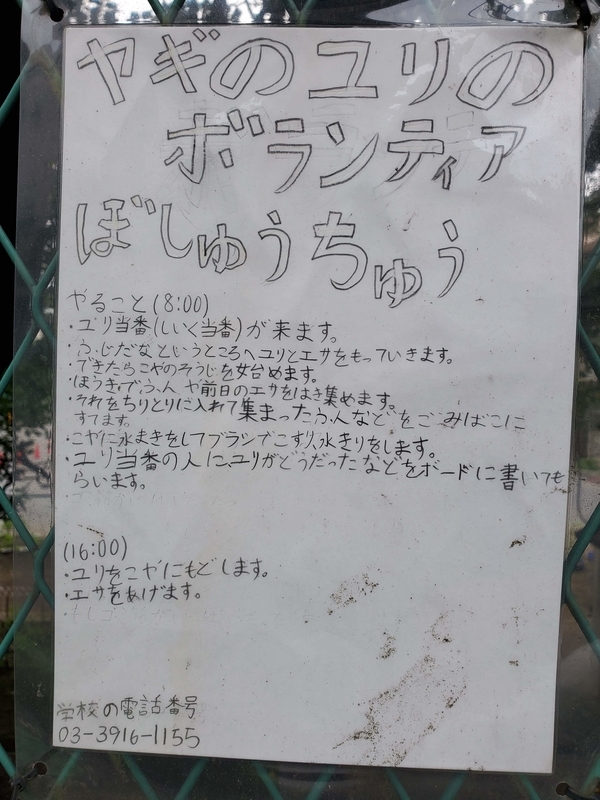 ヤギのユリの
ボランティア
ぼしゅうちゅう
やること(8:00)
・ユリ当番(しいく当番)が来ます。
・ふじだなというところへユリとエサをもっていきます。
・できたらこやのそうじを始めます。
・ほうきで、ふんや前日のエサをはき集めます。
・それをちりとりに入れて集まったふんなどをごみばこに
すてます。
・こやに水まきをしてブラシでこすり、水きりをします。
・ユリ当番の人に、ユリがどうだったなどをボードに書いても
らいます。
(16:00)
・ユリをこやにもどします。
・エサをあげます。
学校の電話番号
03-3916-1155